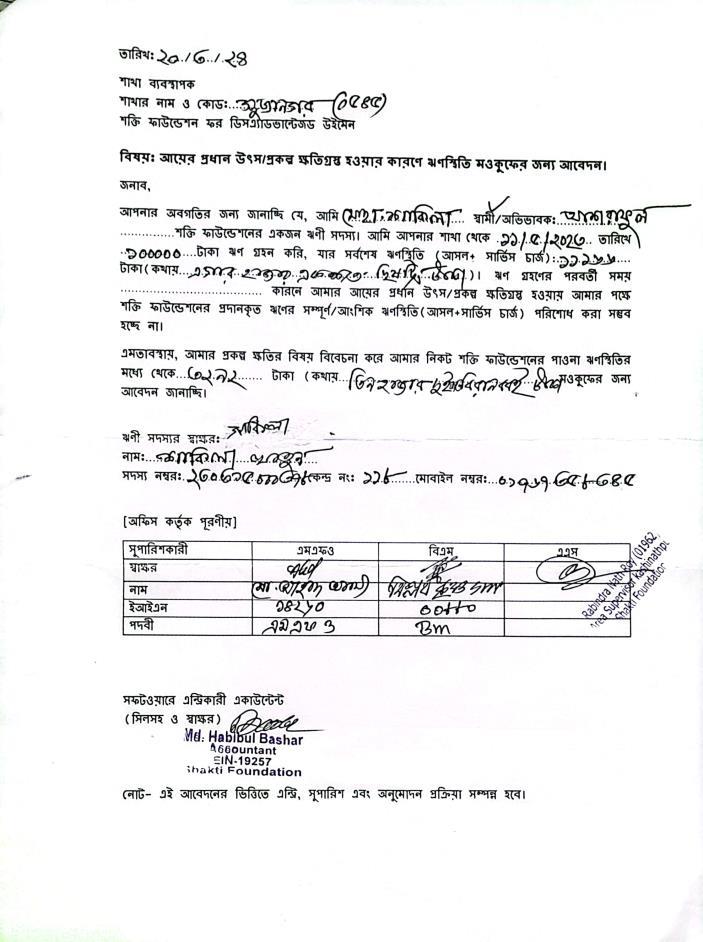 তারিখ: ২০/৬/২৪
শাখা ব্যবস্থাপক
শাখার নাম ও কোড:...সুজানগর (০৫৪৫)
শক্তি ফাউন্ডেশন ফর ডিসএ্যাডভান্টেজড উইমেন
বিষয়: আয়ের প্রধান উৎস/প্রকল্প ক্ষতিগ্রস্থ হওয়ার কারণে ঋণস্থিতি মওকুফের জন্য আবেদন।
জনাব,
আপনার অবগতির জন্য জানাচ্ছি যে, আমি মোছা: শাকিলা.... স্বামী/অভিভাবক:...
...............শক্তি ফাউন্ডেশনের একজন ঋণী সদস্য। আমি আপনার শাখা থেকে ১১/৫/২০২৩.. তারিখে
১০০০০০....টাকা ঋণ গ্রহন করি, যার সর্বশেষ ঋণস্থিতি (আসল+ সার্ভিস চার্জ):..১১১৬৬
টাকা (কথায়...এগার হাজার একশত টাকা)। ঋণ গ্রহণের পরবর্তী সময়
............................... কারনে আমার আয়ের প্রধান উৎস/প্রকল্প ক্ষতিগ্রস্থ হওয়ায় আমার পক্ষে
শক্তি ফাউন্ডেশনের প্রদানকৃত ঋণের সম্পূর্ণ/আংশিক ঋণস্থিতি (আসল+সার্ভিস চার্জ) পরিশোধ করা সম্ভব
হচ্ছে না।
এমতাবস্থায়, আমার প্রকল্প ক্ষতির বিষয় বিবেচনা করে আমার নিকট শক্তি ফাউন্ডেশনের পাওনা ঋণস্থিতির
মধ্যে থেকে...৩২৯২....... টাকা (কথায়...তিন হাজার দুইশত বিরানব্বই টাকা মওকুফের জন্য
আবেদন জানাচ্ছি।
ঋণী সদস্যর স্বাক্ষর: শাকিলা
নাম:...শাকিলা খাতুন....
সদস্য নম্বর: কেন্দ্র নং: ১১৮.......মোবাইল নম্বর:...
[অফিস কর্তৃক পূরণীয়]
সুপারিশকারী এমএফও বিএম এএস
স্বাক্ষর
নাম
ইআইএন ১৪২১০ ০০৮৮০
পদবী এম এফ ও Bm
Rabindra Nath Roy (01962
Area Supervisor Kashinathpur
Shakti Foundation
সফটওয়ারে এন্ট্রিকারী একাউন্টেন্ট
(সিলসহ ও স্বাক্ষর)
Md. Habibul Bashar
Accountant
EIN-19257
Shakti Foundation
নোট- এই আবেদনের ভিত্তিতে এন্ট্রি, সুপারিশ এবং অনুমোদন প্রক্রিয়া সম্পন্ন হবে।